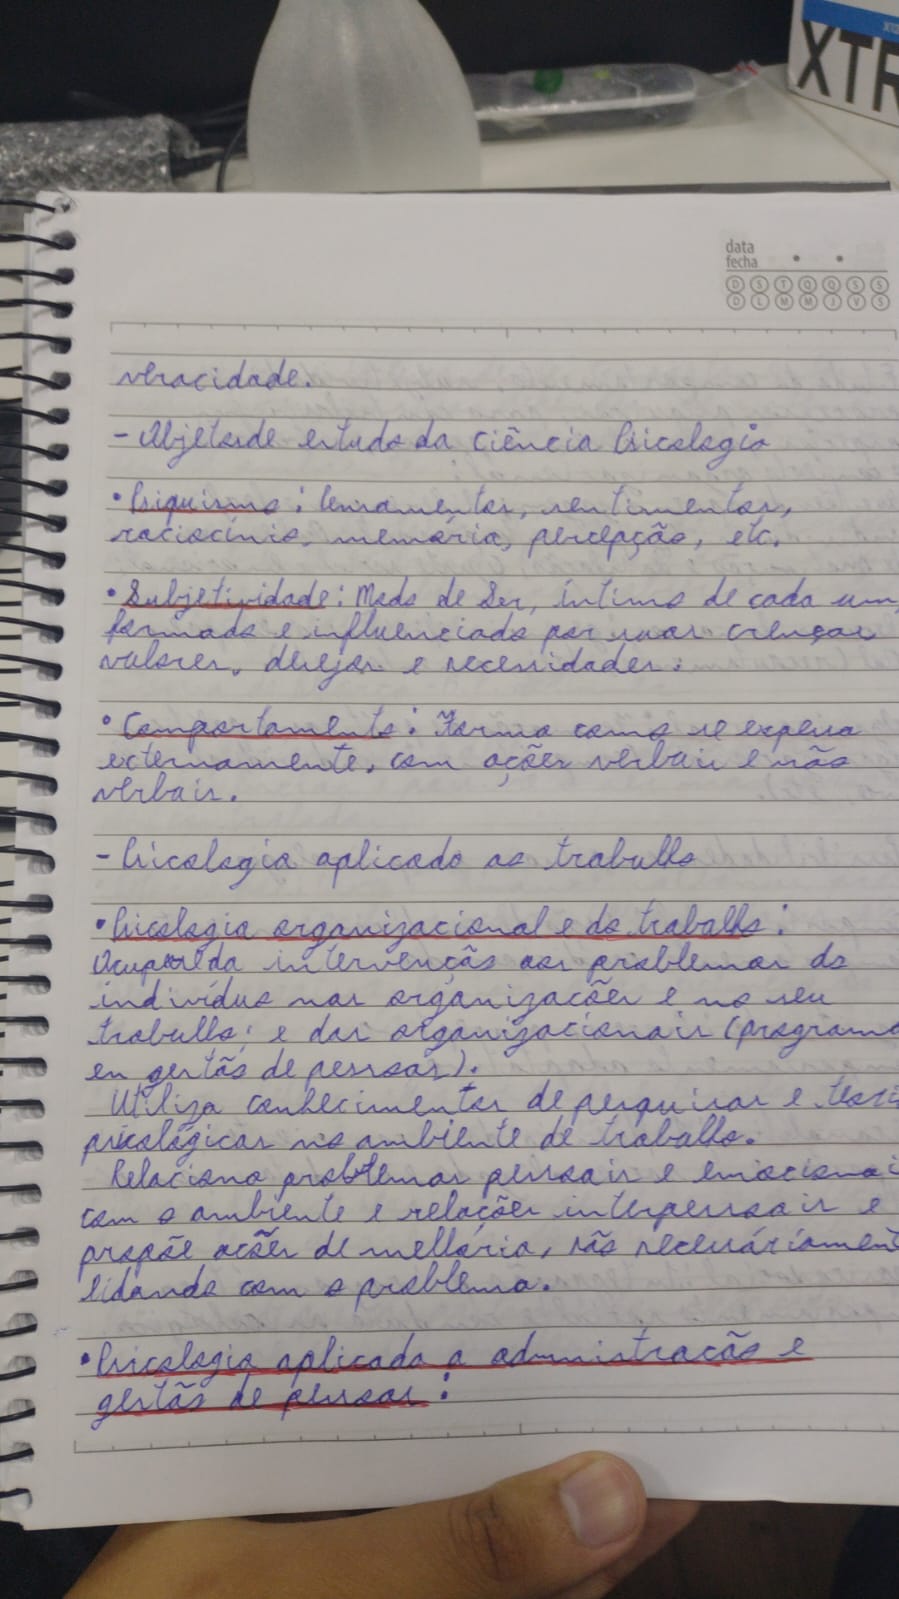 XTR
data
fecha
D S T Q Q S S
D L M M J V S
veracidade.
- Objetos de estudo da Ciência Psicologia
• Psiquismo: Pensamentos, sentimentos,
raciocínio, memória, percepção, etc.
• Subjetividade: Modo de Ser, íntimo de cada um,
formado e influenciado por suas crenças
valores, desejos e necessidades.
• Comportamento: Forma como se expressa
externamente, com ações verbais e não
verbais.
- Psicologia aplicada ao trabalho
• Psicologia organizacional e do trabalho:
Ocupa-se da intervenção aos problemas do
indivíduo nas organizações e no seu
trabalho; e das organizacionais (programa
em gestão de pessoas).
Utiliza conhecimentos de pesquisas e
psicológicas no ambiente de trabalho.
Relaciona problemas pessoais e emocionai
com o ambiente e relações interpessoais e
propõe ações de melhoria, não necessáriament
lidando com o problema.
• Psicologia aplicada a administração e
gestão de pessoas: